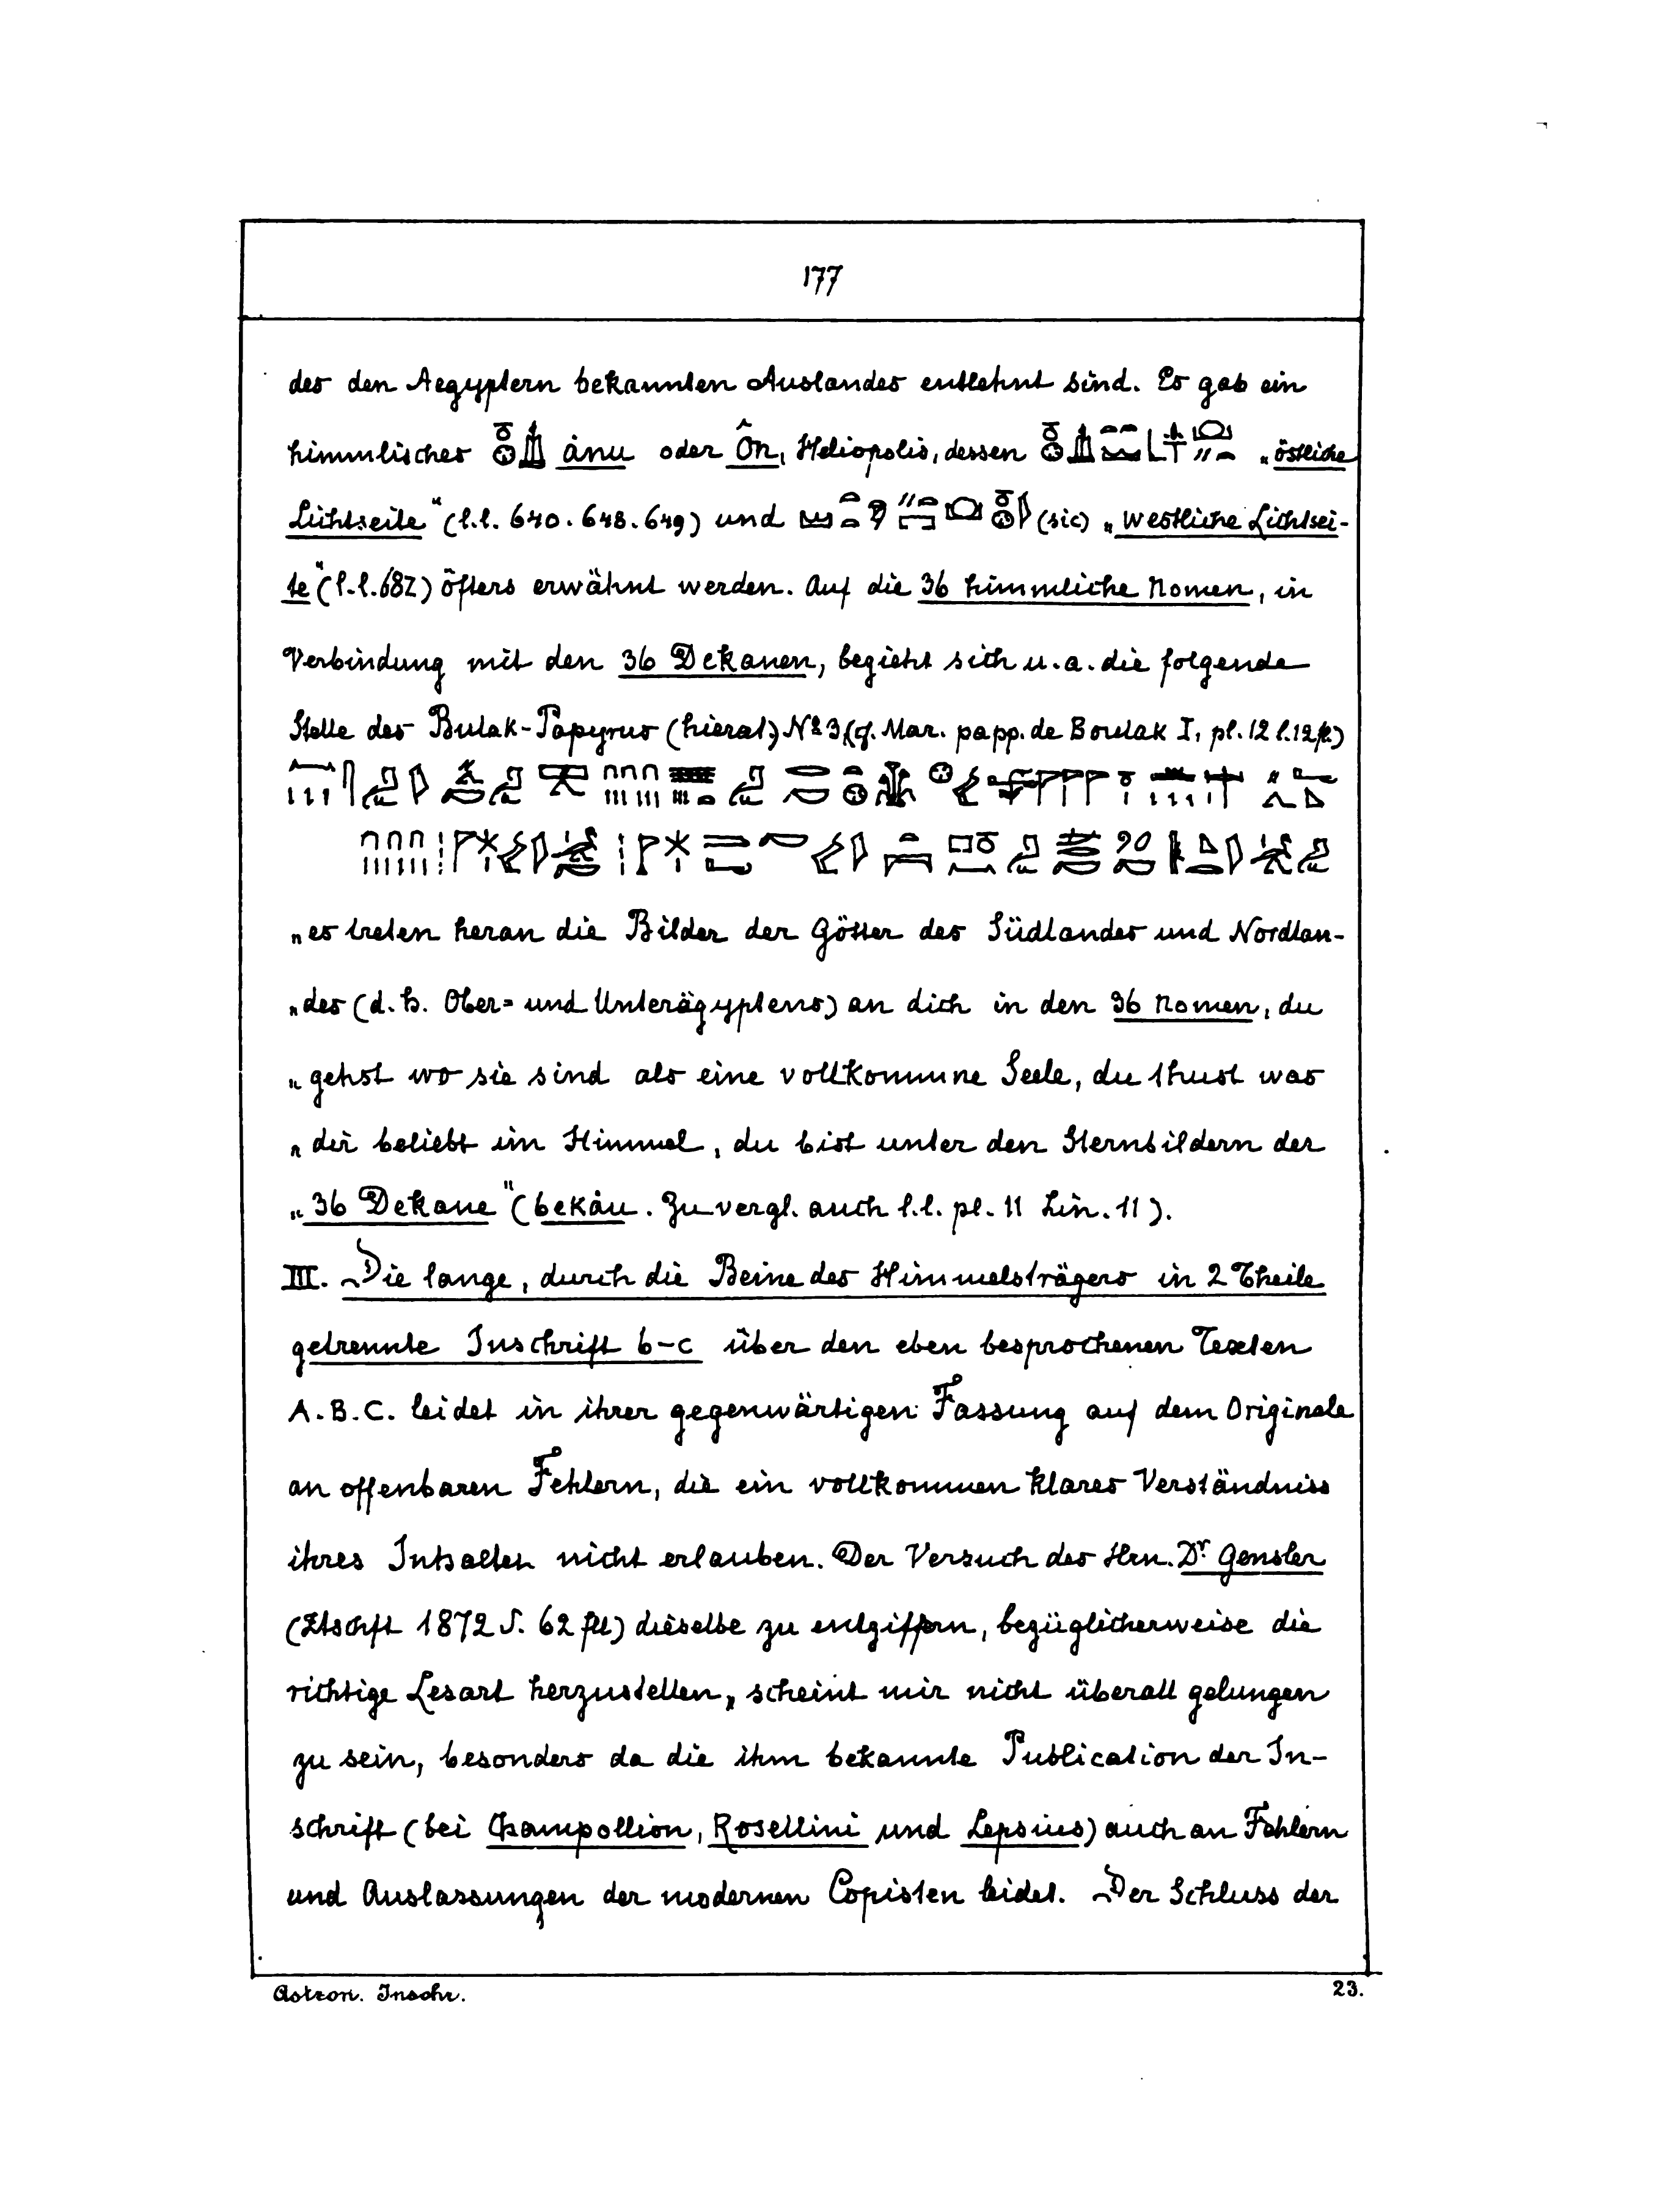 177
des den Aegyptern bekannten Auslandes entlehnt sind. Es gab ein
himmlisches ánu oder Ôn, Heliopolis, dessen „östliche
Lichtseite“ (l.l. 640. 648. 649) und (sic) „westliche Lichtsei-
te“ (l.l. 682) öfters erwähnt werden. Auf die 36 himmliche Nomen, in
Verbindung mit den 36 Dekanen, bezieht sich u. a. die folgende
Stelle des Bulak-Papyrus (hierat.) No 3 (cf. Mar. papp. de Boulak I, pl. 12 l. 12 fl.)
„es treten heran die Bilder der Götter des Südlandes und Nordlan-
„des (d. h. Ober= und Unterägyptens) an dich in den 36 Nomen, du
„gehst wo sie sind als eine vollkommne Seele, du thust was
„dir beliebt im Himmel, du bist unter den Sternbildern der
„36 Dekane“ (bekáu. Zu vergl. auch l.l. pl. 11 Lin. 11).
III. Die lange, durch die Beine des Himmelsträgers in 2 Theile
getrennte Inschrift b-c über den eben besprochenen Texten
A. B. C. leidet in ihrer gegenwärtigen Fassung auf dem Originale
an offenbaren Fehlern, die ein vollkommen klares Verständniss
ihres Inhaltes nicht erlauben. Der Versuch des Hrn. Dr. Gensler
(Ztschft 1872 S. 62 fll) dieselbe zu entziffern, bezüglicherweise die
richtige Lesart herzustellen, scheint mir nicht überall gelungen
zu sein, besonders da die ihm bekannte Publication der In-
schrift (bei Champollion, Rosellini und Lepsius) auch an Fehlern
und Auslassungen der modernen Copisten leidet. Der Schluss der
Astron. Inschr. 23.